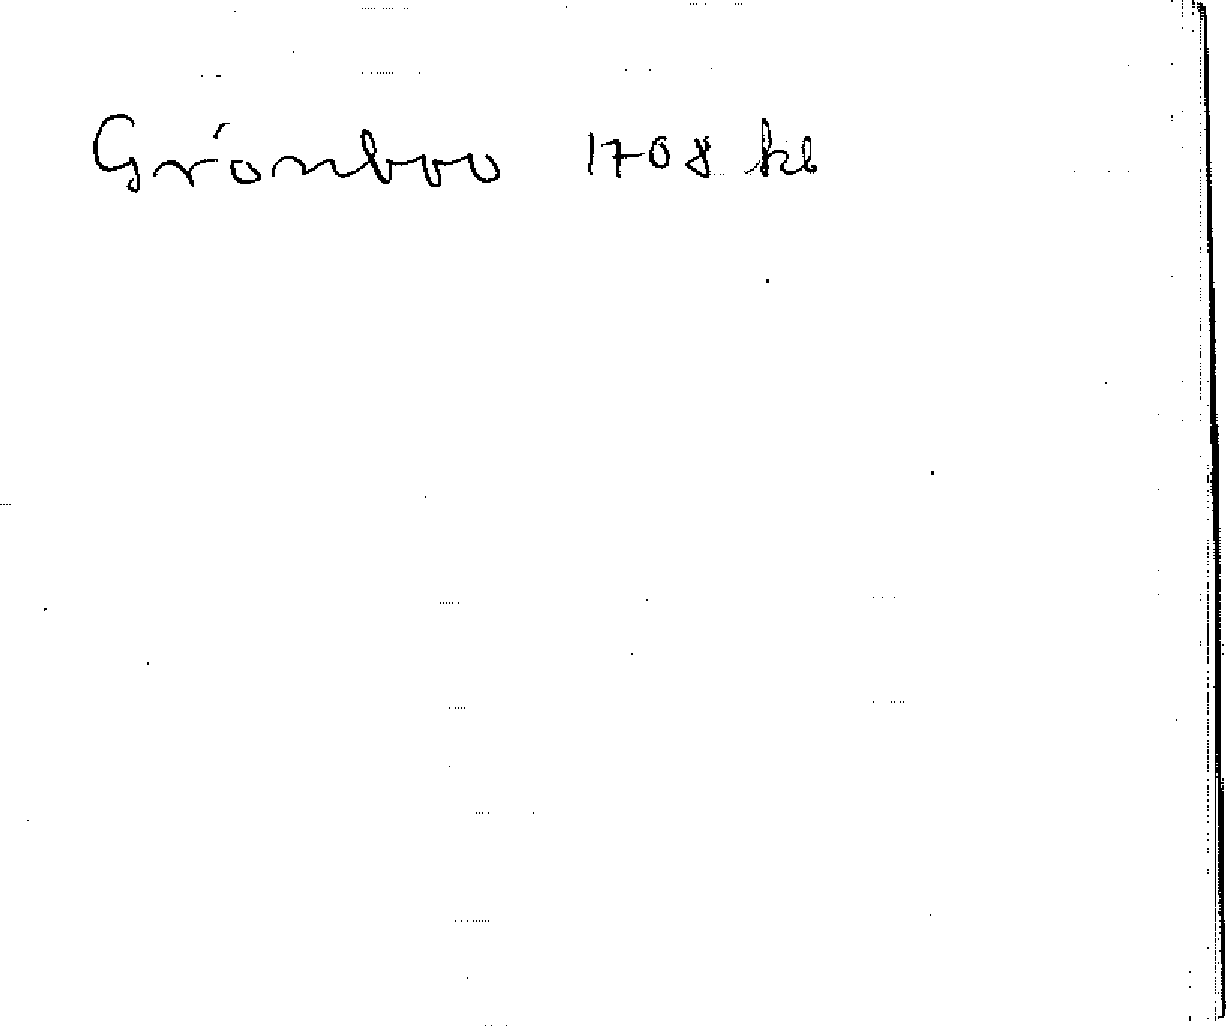 Grönboo 1708 kl